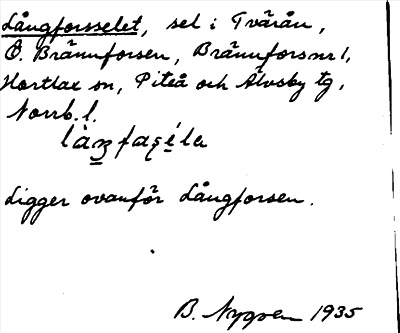 Långforsselet, sel i Tvärån,
Ö. Brännforsen, Brännfors nr 1,
Hortlax sn, Piteå och Älvsby tg,
Norrb. l.
Ligger ovanför Långforsen.
B. Nygren 1935